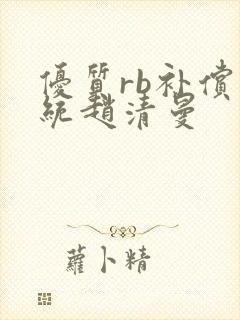 優質rb补償
統趙清曼
蘿卜精